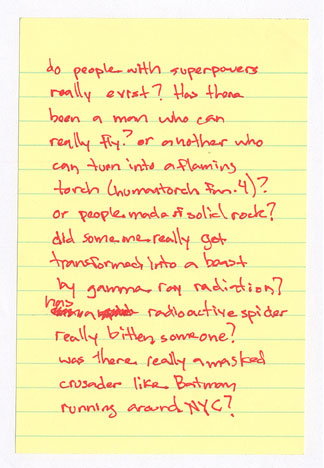 do people with superpowers
really exist? Has there
been a man who can
really fly? or another who
can turn into a flaming
torch (human torch Fan. 4)?
or people made of solid rock?
did someone really get
transformed into a beast
by gamma ray radiation?
has a radioactive spider
really bitten someone?
was there really a masked
crusader like Batman
running around NYC?